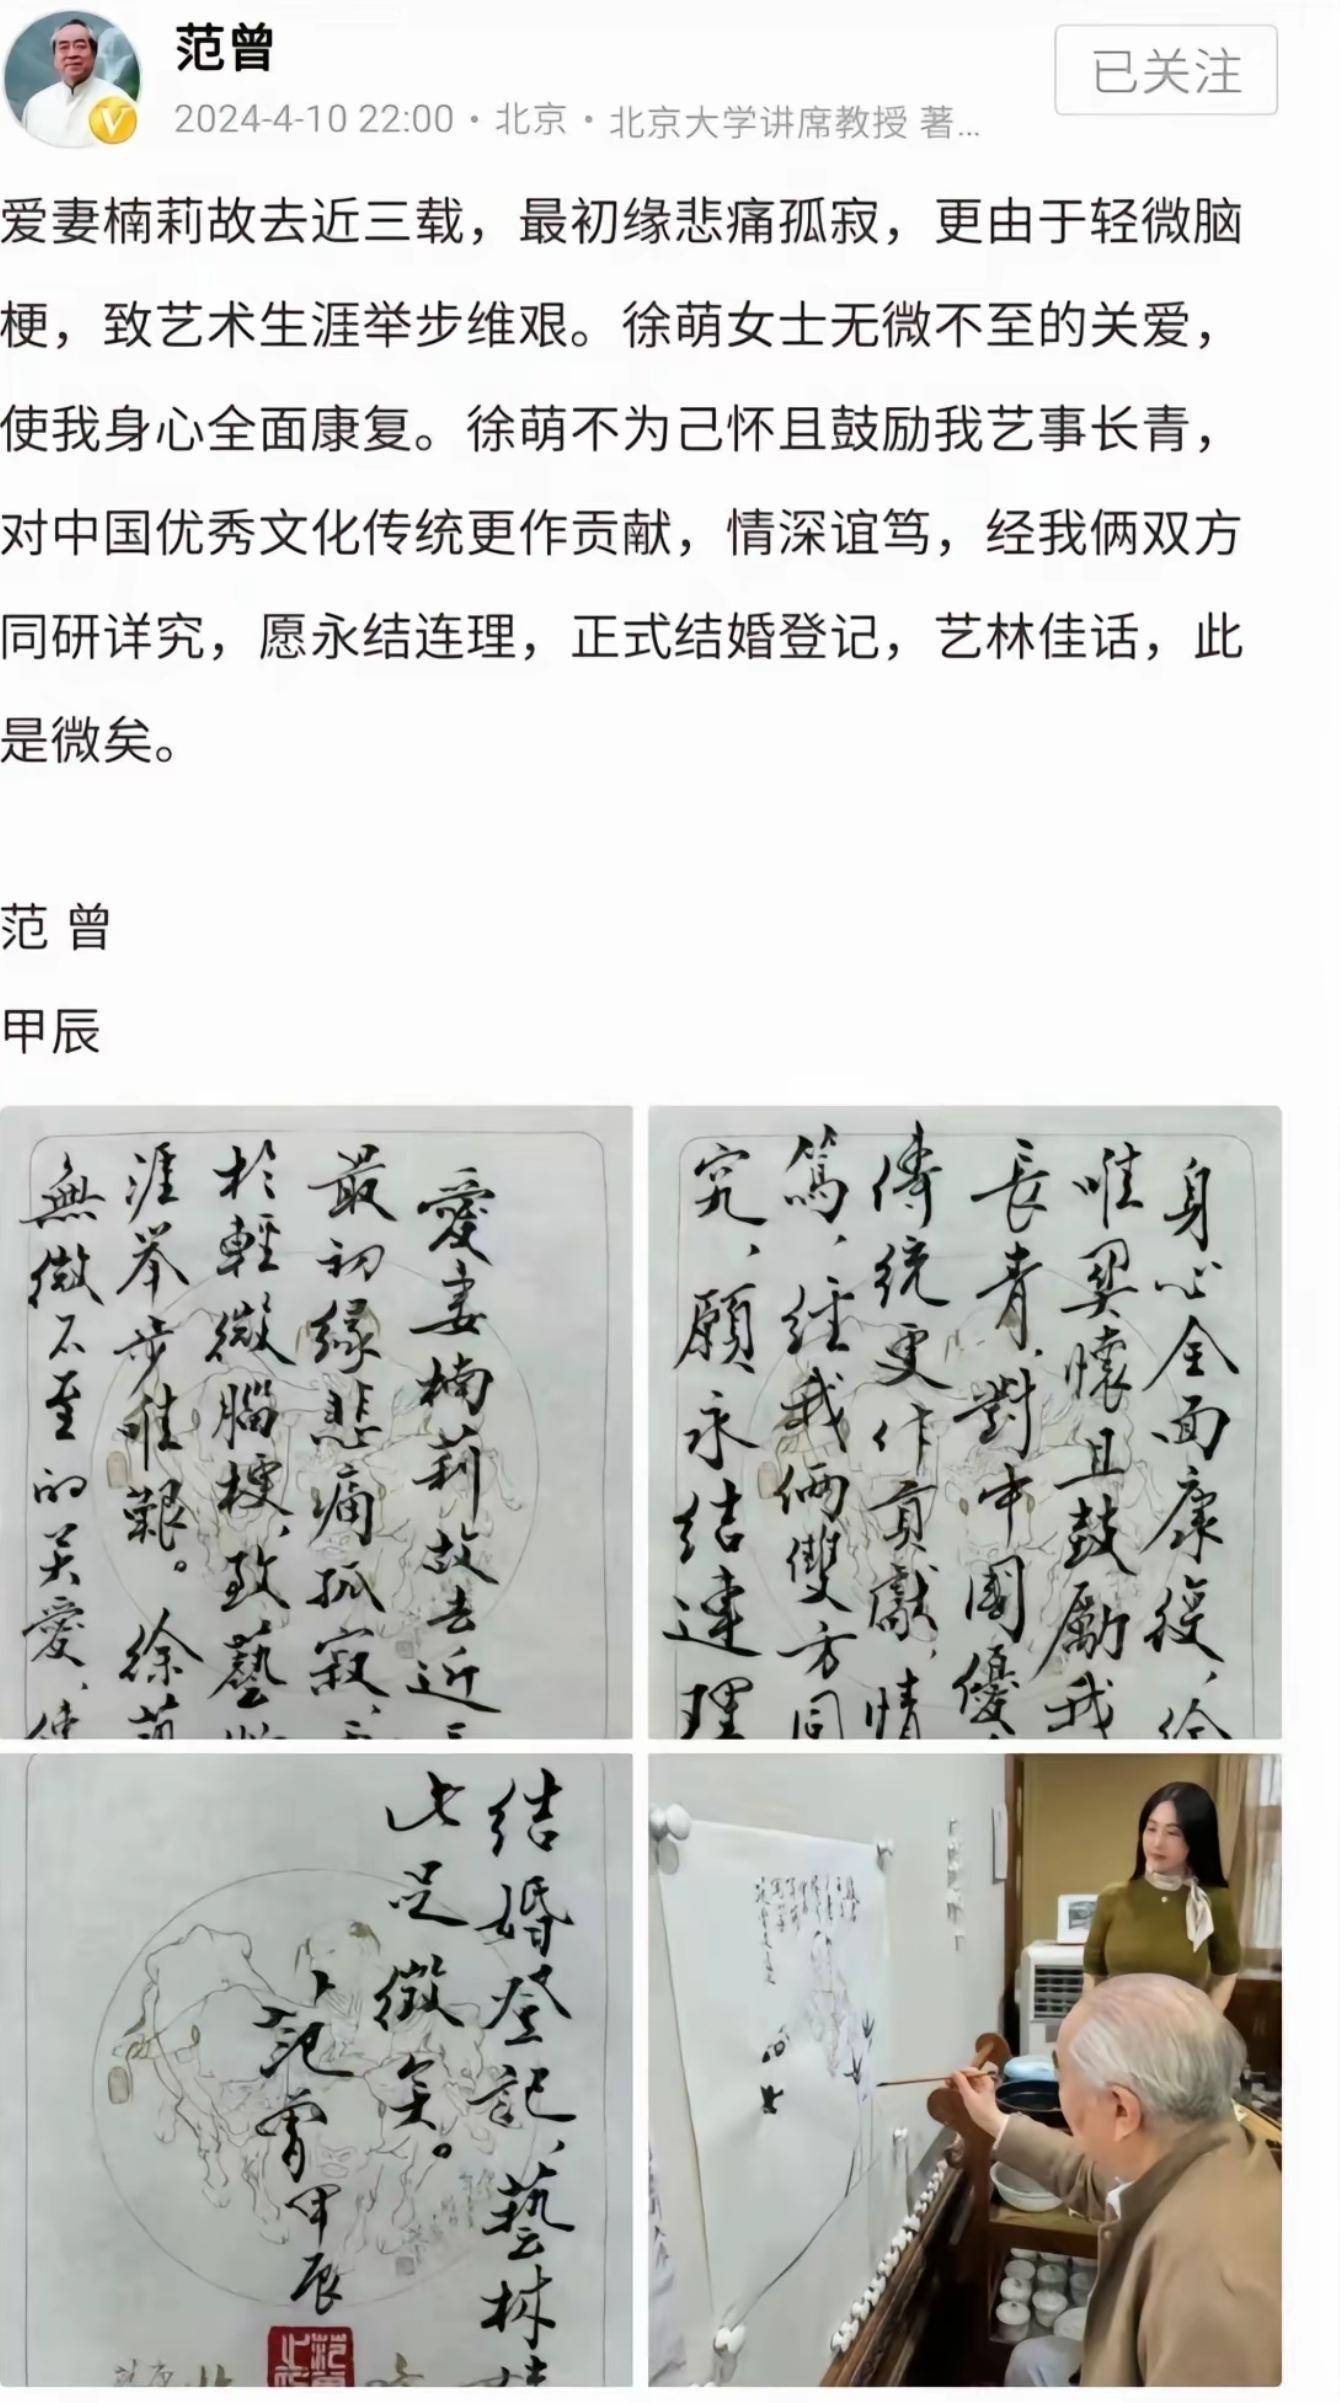 范曾
已关注
2024-4-10 22:00・北京・北京大学讲席教授 著...
爱妻楠莉故去近三载，最初缘悲痛孤寂，更由于轻微脑
梗，致艺术生涯举步维艰。徐萌女士无微不至的关爱，
使我身心全面康复。徐萌不为己怀且鼓励我艺事长青，
对中国优秀文化传统更作贡献，情深谊笃，经我俩双方
同研详究，愿永结连理，正式结婚登记，艺林佳话，此
是微矣。
范 曾
甲辰
愛妻楠莉故去近三
最初緣悲痛孤寂、
於輕微腦梗、致藝
涯举步唯艱。徐萌
無微不至的关愛、使
身心全面康復、徐
唯契懷且鼓勵我
長青、對中國優
傳統更作貢獻、情
篤、經我俩雙方同
究、願永结連理
结婚登記、藝林
此足微矣。
范曾甲辰